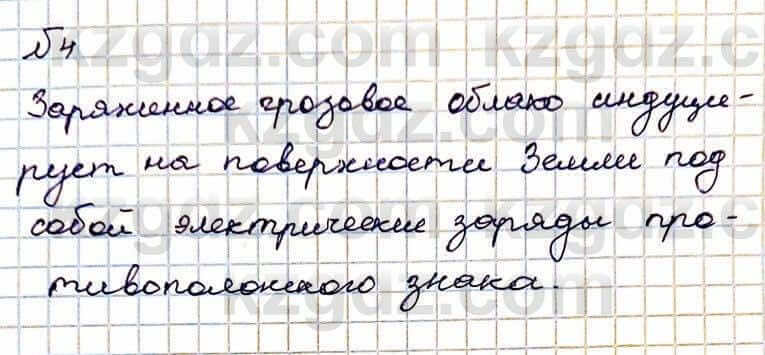 №4
Заряженное грозовое облако индуци-
рует на поверхности Земли под
собой электрические заряды про-
тивоположного знака.
kzgdz.com